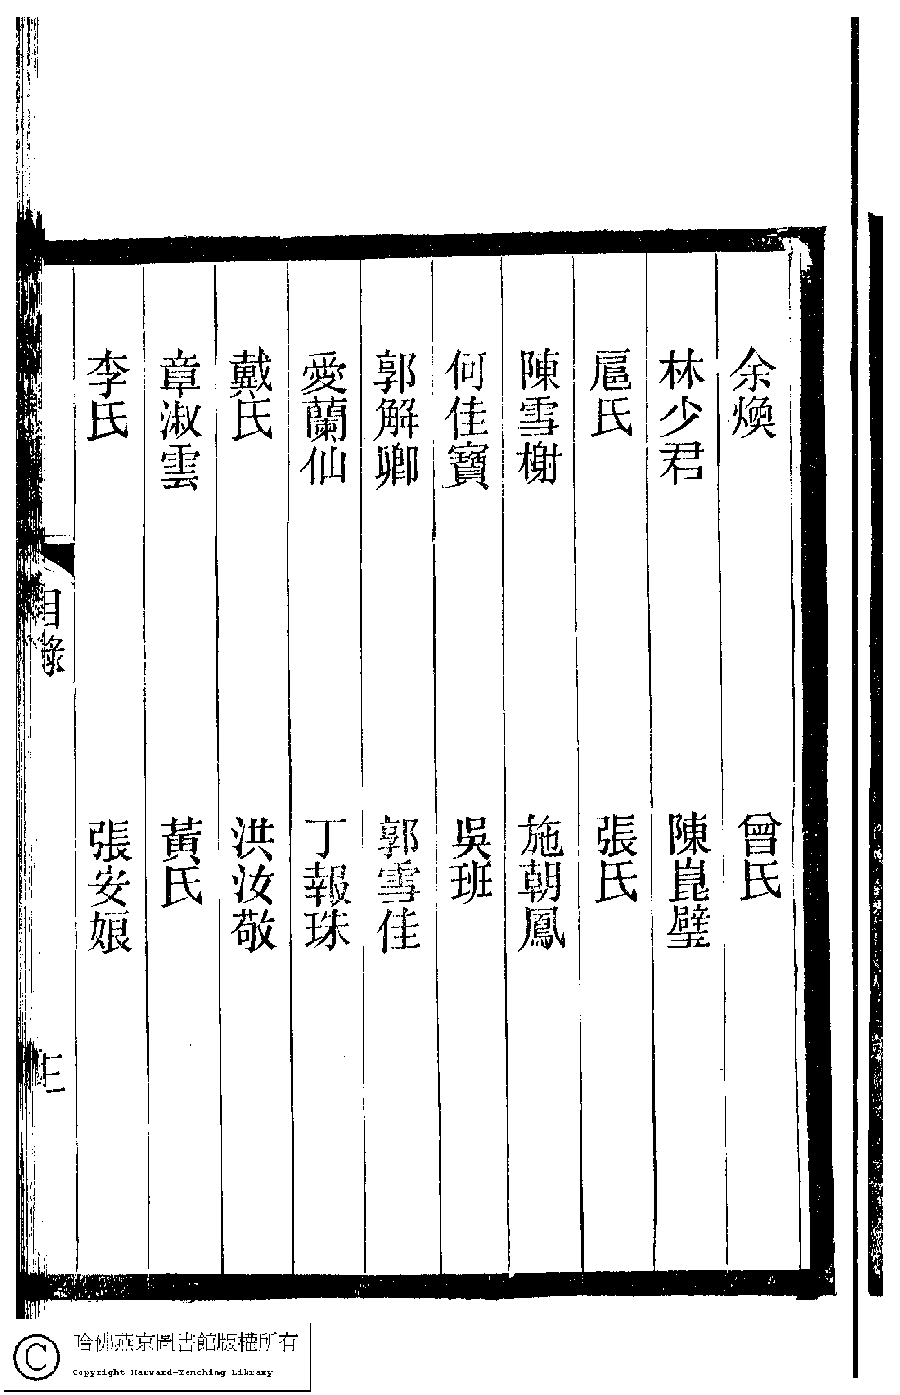 余煥
曾氏
林少君
陳崑璧
扈氏
張氏
陳雪榭
施朝鳳
何佳寶
吳班
郭解卿
郭雪佳
愛蘭仙
丁報珠
戴氏
洪汝敬
章淑雲
黃氏
李氏
張安娘
目錄
哈佛燕京圖書館版權所有
Copyright Harvard-Yenching Library